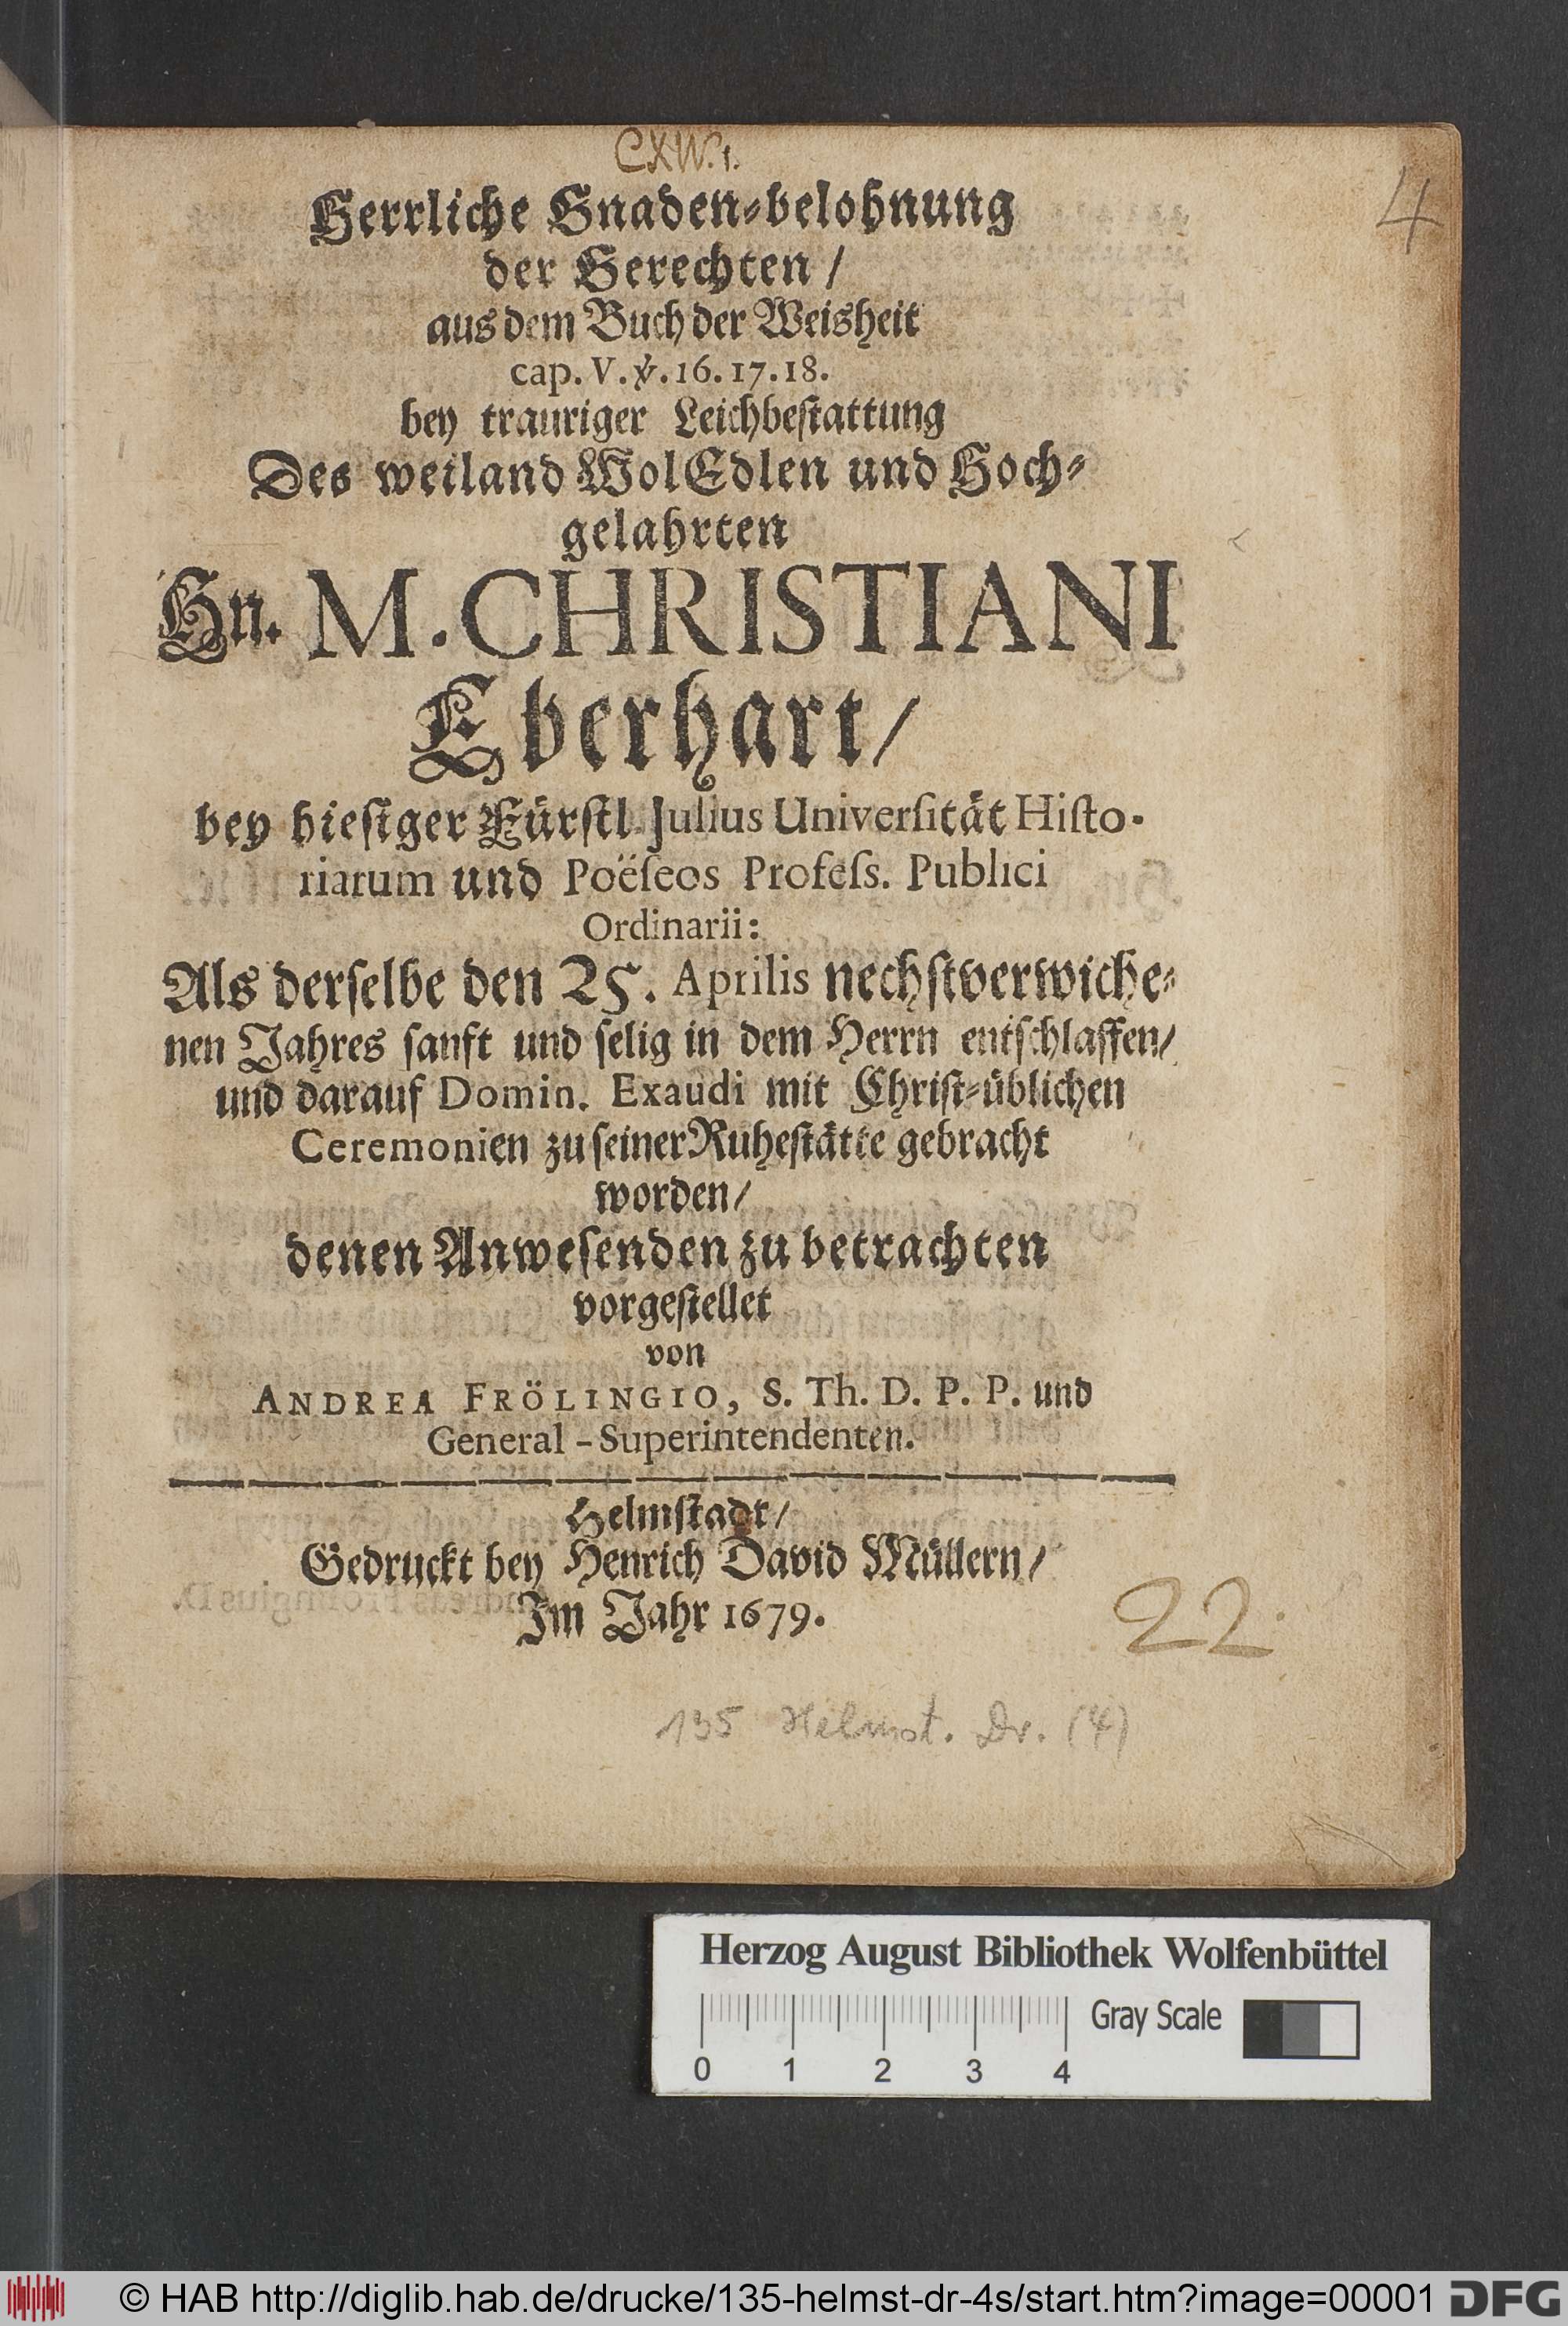 4
Herrliche Gnaden-belohnung
der Gerechten/
aus dem Buch der Weisheit
cap. V. ℣. 16. 17. 18.
bey trauriger Leichbestattung
Des weiland WolEdlen und Hoch-
gelahrten
Hn. M. CHRISTIANI
Eberhart/
bey hiesiger Fürstl. Julius Universität Histo-
riarum und Poëseos Profess. Publici
Ordinarii:
Als derselbe den 25. Aprilis nechstverwiche-
nen Jahres sanft und selig in dem Herrn entschlaffen/
und darauf Domin. Exaudi mit Christ-üblichen
Ceremonien zu seiner Ruhestätte gebracht
worden/
denen Anwesenden zu betrachten
vorgestellet
von
ANDREA FRÖLINGIO, S. Th. D. P. P. und
General-Superintendenten.
Helmstadt/
Gedruckt bey Henrich David Müllern/
Im Jahr 1679.
22.
135 Helmst. Dr. (4)
Herzog August Bibliothek Wolfenbüttel
Gray Scale
0 1 2 3 4
© HAB http://diglib.hab.de/drucke/135-helmst-dr-4s/start.htm?image=00001 DFG